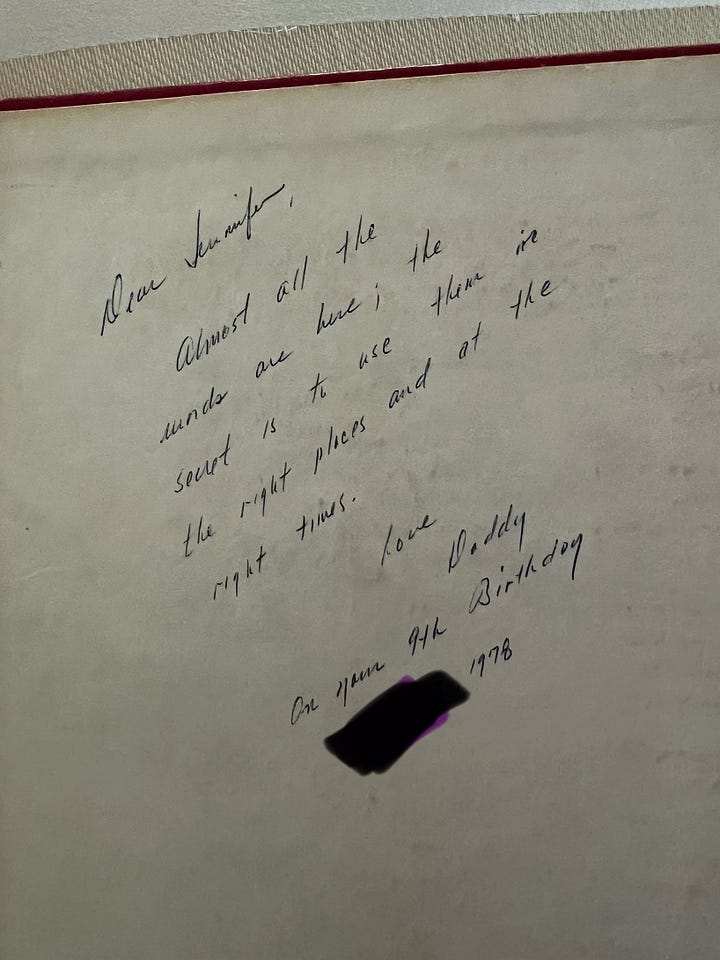 Dear Jennifer,
Almost all the
words are here; the
secret is to use them in
the right places and at the
right times.
Love
Daddy
On your 9th Birthday
1978